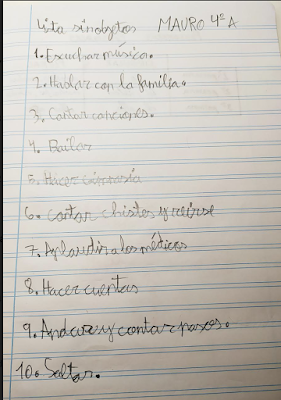 Lista sin objetos MAURO 4º A
1. Escuchar música.
2. Hablar con la familia.
3. Cantar canciones.
4. Bailar
5. Hacer gimnasia
6. contar chistes y reirse
7. Aplaudir a los médicos
8. Hacer cuentas
9. Andar y contar pasos.
10. Saltar.